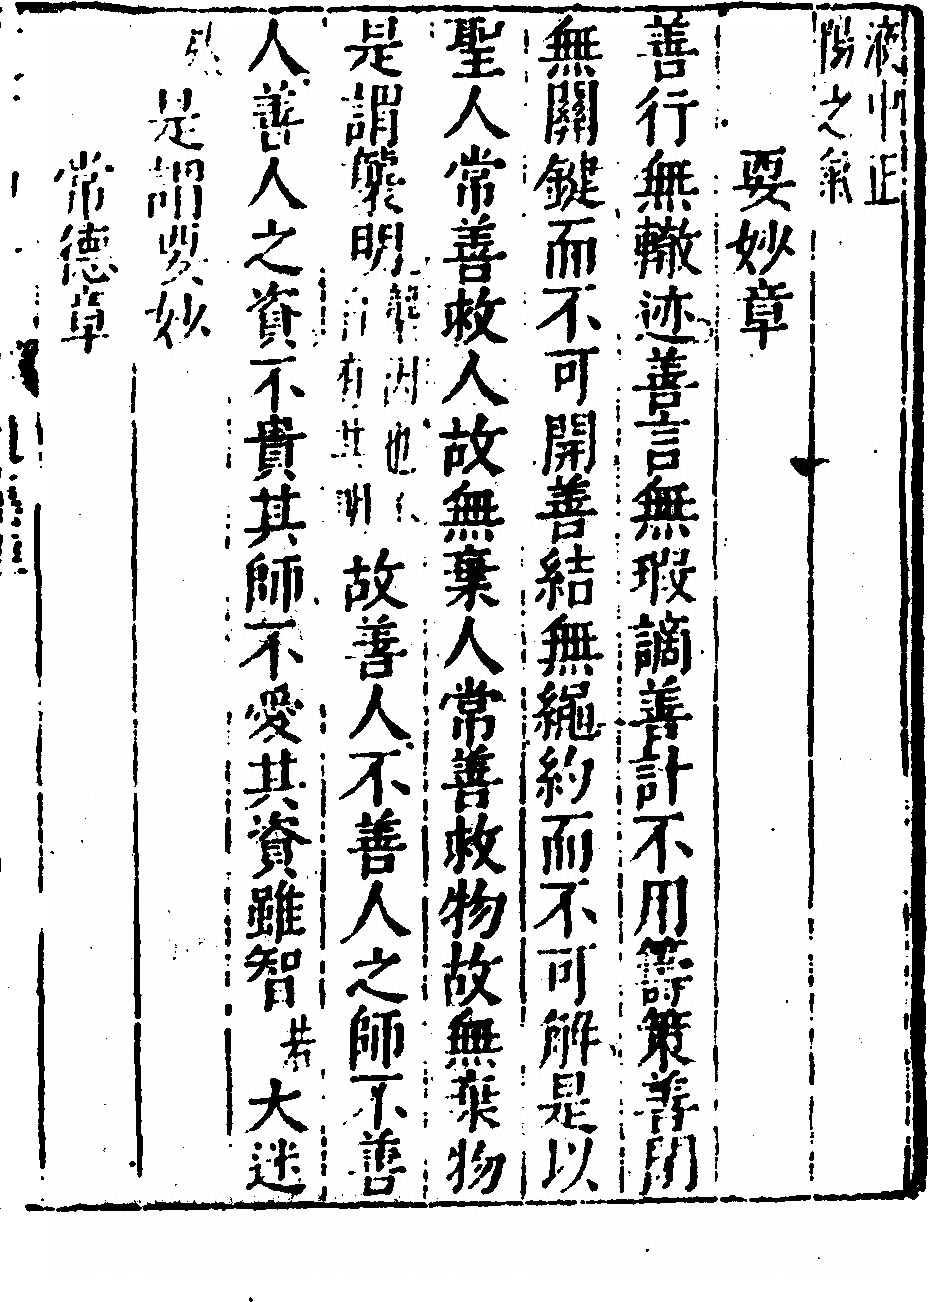 滿中正
陽之氣
要妙章
善行無轍迹善言無瑕謫善計不用籌策善閉
無關鍵而不可開善結無繩約而不可解是以
聖人常善救人故無棄人常善救物故無棄物
是謂襲明襲因也人
有其明故善人不善人之師不善
人善人之資不貴其師不愛其資雖智若大迷
是謂要妙
常德章